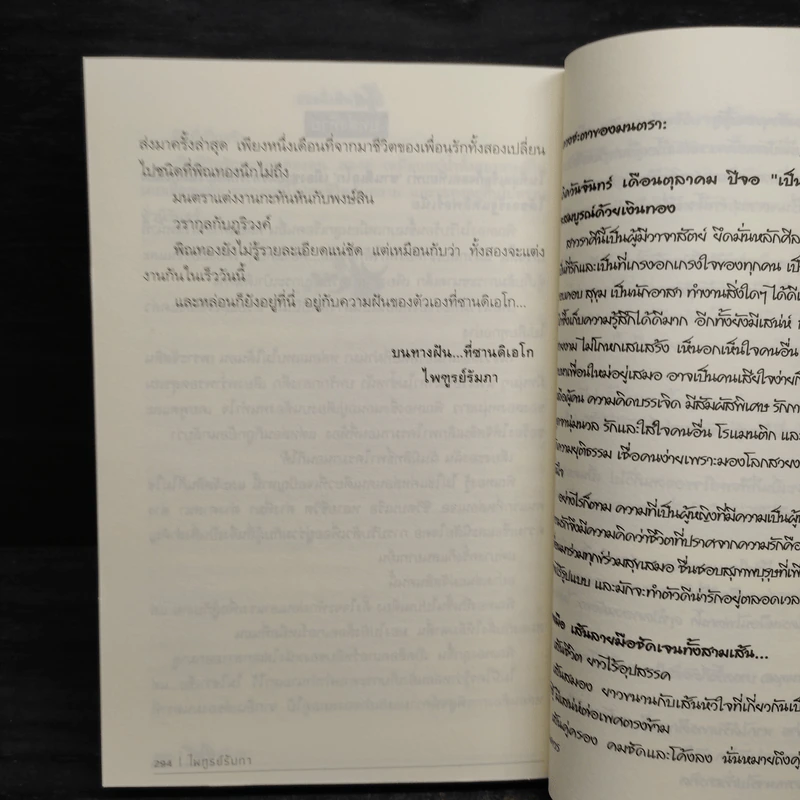 ส่งมาครั้งล่าสุด เพียงหนึ่งเดือนที่จากมาชีวิตของเพื่อนรักทั้งสองเปลี่ยน
ไปชนิดที่พิณทองนึกไม่ถึง
มนตราแต่งงานกะทันทันกับพงษ์สิน
วรากุลกับภูริวงค์
พิณทองยังไม่รู้รายละเอียดแน่ชัด แต่เหมือนกับว่า ทั้งสองจะแต่ง
งานกันในเร็ววันนี้
และหล่อนก็ยังอยู่ที่นี่ อยู่กับความฝันของตัวเองที่ซานดิเอโก...
บนทางฝัน...ที่ซานดิเอโก
ไพฑูรย์รัมภา
294 | ไพฑูรย์รัมภา
ชะตาของมนตรา:
วันจันทร์ เดือนตุลาคม ปีจอ "เป็น
สมบูรณ์ด้วยเงินทอง
สาวราศีนี้เป็นผู้มีวาจาสัตย์ ยึดมั่นหลักศีล
ที่รักและเป็นที่เกรงอกเกรงใจของทุกคน เป็
สุขุม เป็นนักอาสา ทำงานสิ่งใดๆ ได้ดี
เก็บความรู้สึกได้ดีมาก อีกทั้งยังมีเสน่ห์
ไม่โกหกเสแสร้ง เห็นอกเห็นใจคนอื่น
เพื่อนใหม่อยู่เสมอ อาจเป็นคนเสียใจง่าย
ผู้คน ความคิดบรรเจิด มีสัมผัสพิเศษ รัก
นุ่มนวล รักและใส่ใจคนอื่น โรแมนติก และ
ความยุติธรรม เชื่อคนง่ายเพราะมองโลกสวย
อย่างไรก็ตาม ความที่เป็นผู้หญิงที่มีความเป็นผู้
รักจึงมีความคิดว่าชีวิตที่ปราศจากความรักคือ
ร่วมทุกข์ร่วมสุขเสมอ ชื่นชอบสุภาพบุรุษที่
รูปแบบ และมักจะทำตัวดีน่ารักอยู่ตลอดเวล
มือ เส้นลายมือชัดเจนทั้งสามเส้น...
เส้นชีวิต ยาวไร้อุปสรรค
เส้นสมอง ยาวขนานกับเส้นหัวใจที่เกี่ยวกัน
มีเสน่ห์ต่อเพศตรงข้าม
เส้นคู่ครอง คมชัดและโค้งลง นั่นหมายถึงคู่